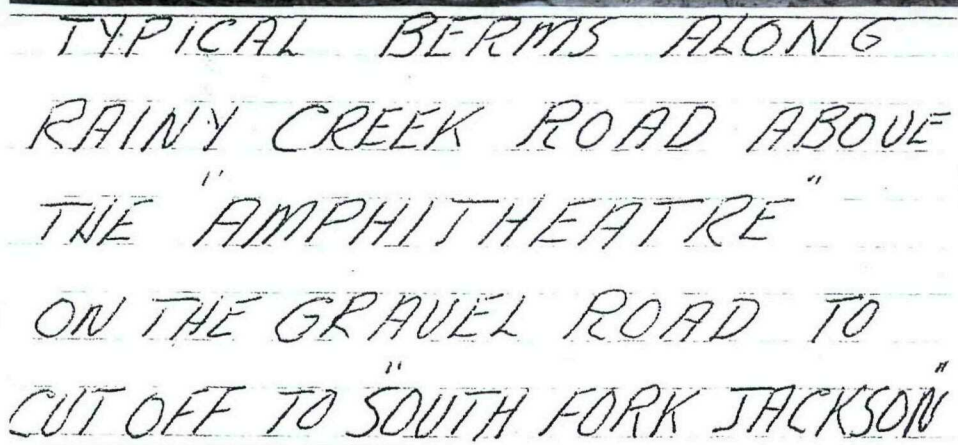 TYPICAL BERMS ALONG
RAINY CREEK ROAD ABOVE
THE "AMPHITHEATRE"
ON THE GRAVEL ROAD TO
CUT OFF TO "SOUTH FORK JACKSON"